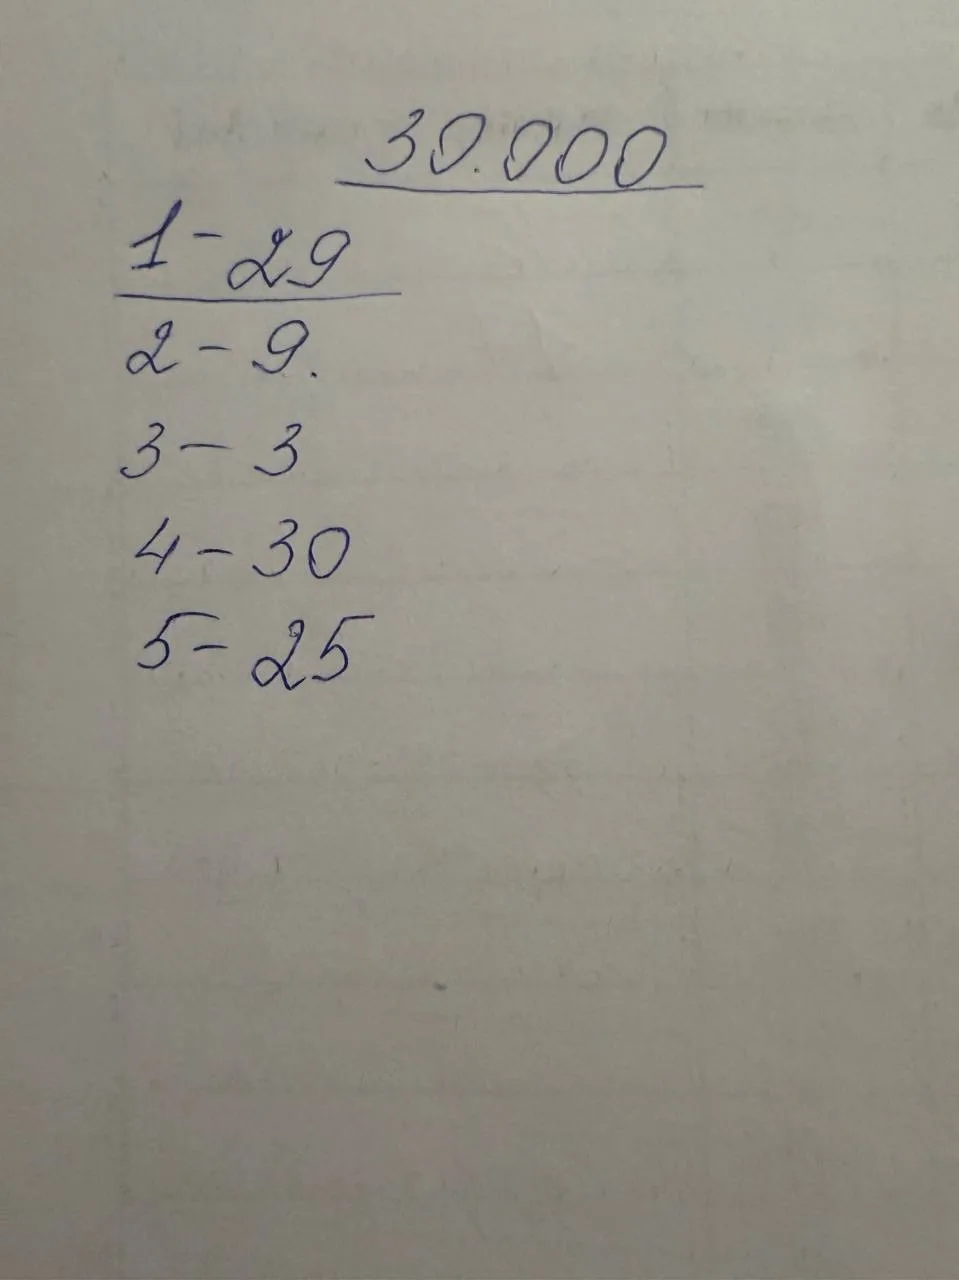 30.000
1 - 29
2 - 9.
3 - 3
4 - 30
5 - 25